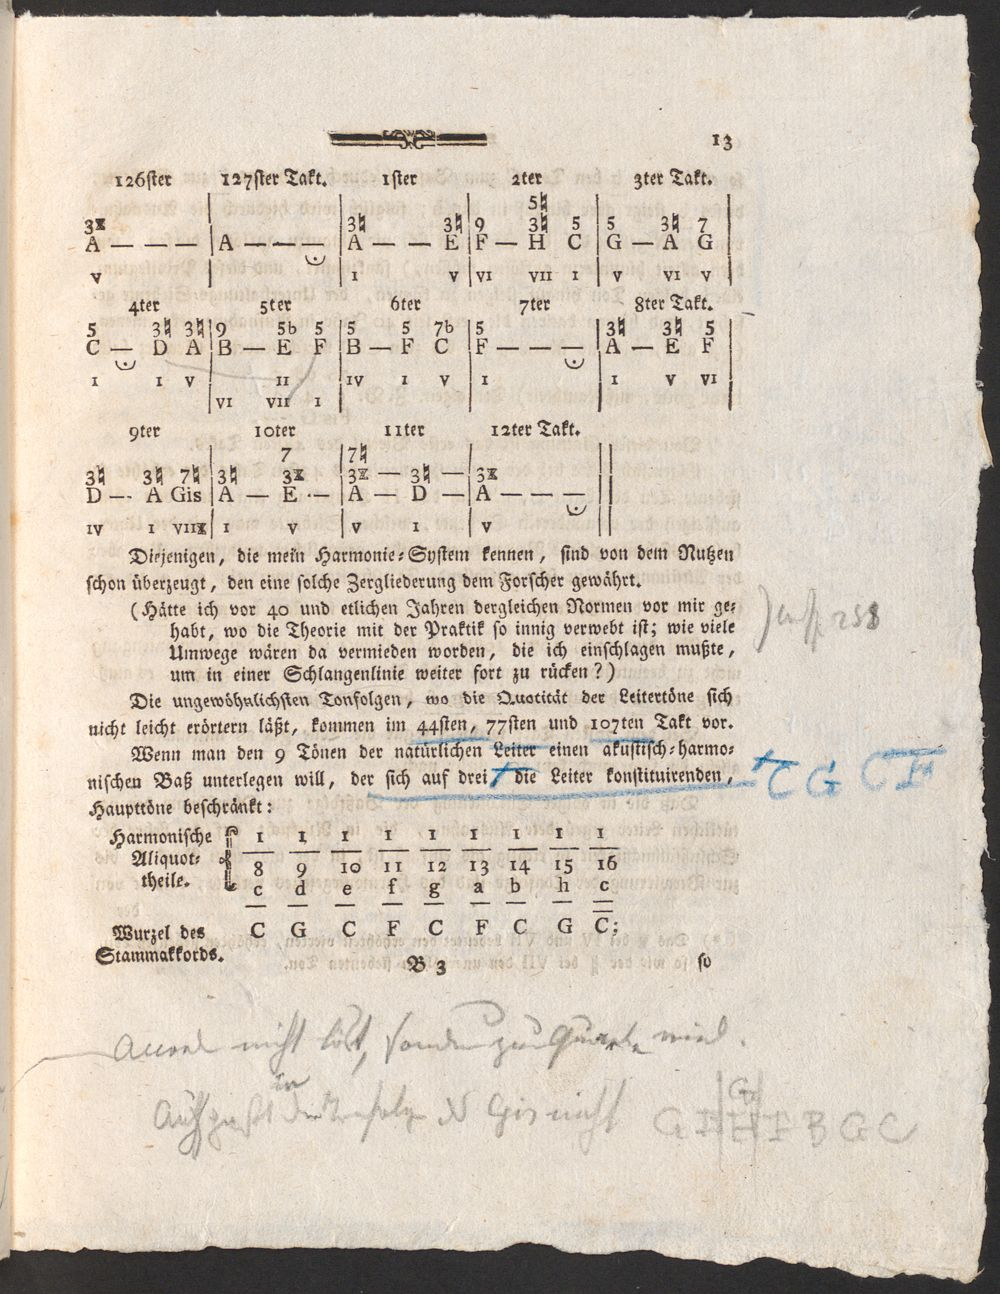 13
126ster 127ster Takt. 1ster 2ter 3ter Takt.
5♮
3𝄪 3♮ 3♮ 9 3♮ 5 5 3♮ 7
A — — — | A — — — | A — — E | F — H C | G — A G |
V I V VI VII I V VI V
4ter 5ter 6ter 7ter 8ter Takt.
5 3♮ 3♮ 9 5b 5 5 5 7b 5 3♮ 3♮ 5
C — D A | B — E F | B — F C | F — — — | A — E F |
I I V II IV I V I I V VI
VI VII I
9ter 10ter 11ter 12ter Takt.
7 7♮
3♮ 3♮ 7♮ 3♮ 3𝄪 3𝄪 — 3♮ — 3𝄪
D — A Gis | A — E — | A — D — | A — — — ||
IV I VII𝄪 I V V I V
Diejenigen, die mein Harmonie-System kennen, sind von dem Nutzen
schon überzeugt, den eine solche Zergliederung dem Forscher gewährt.
(Hätte ich vor 40 und etlichen Jahren dergleichen Normen vor mir ge-
habt, wo die Theorie mit der Praktik so innig verwebt ist; wie viele
Umwege wären da vermieden worden, die ich einschlagen mußte,
um in einer Schlangenlinie weiter fort zu rücken?)
Die ungewöhnlichsten Tonfolgen, wo die Quotität der Leitertöne sich
nicht leicht erörtern läßt, kommen im 44sten, 77sten und 107ten Takt vor.
Wenn man den 9 Tönen der natürlichen Leiter einen akustisch-harmo-
nischen Baß unterlegen will, der sich auf drei, die Leiter konstituirenden,
C G C F
Haupttöne beschränkt:
Harmonische 1 1 1 1 1 1 1 1 1
Aliquot- 8 9 10 11 12 13 14 15 16
theile. c d e f g a b h c
Wurzel des C G C F C F C G C;
Stammakkords.
B 3 so
Accord nicht löst, sondern zur Quarte wird.
in
nicht